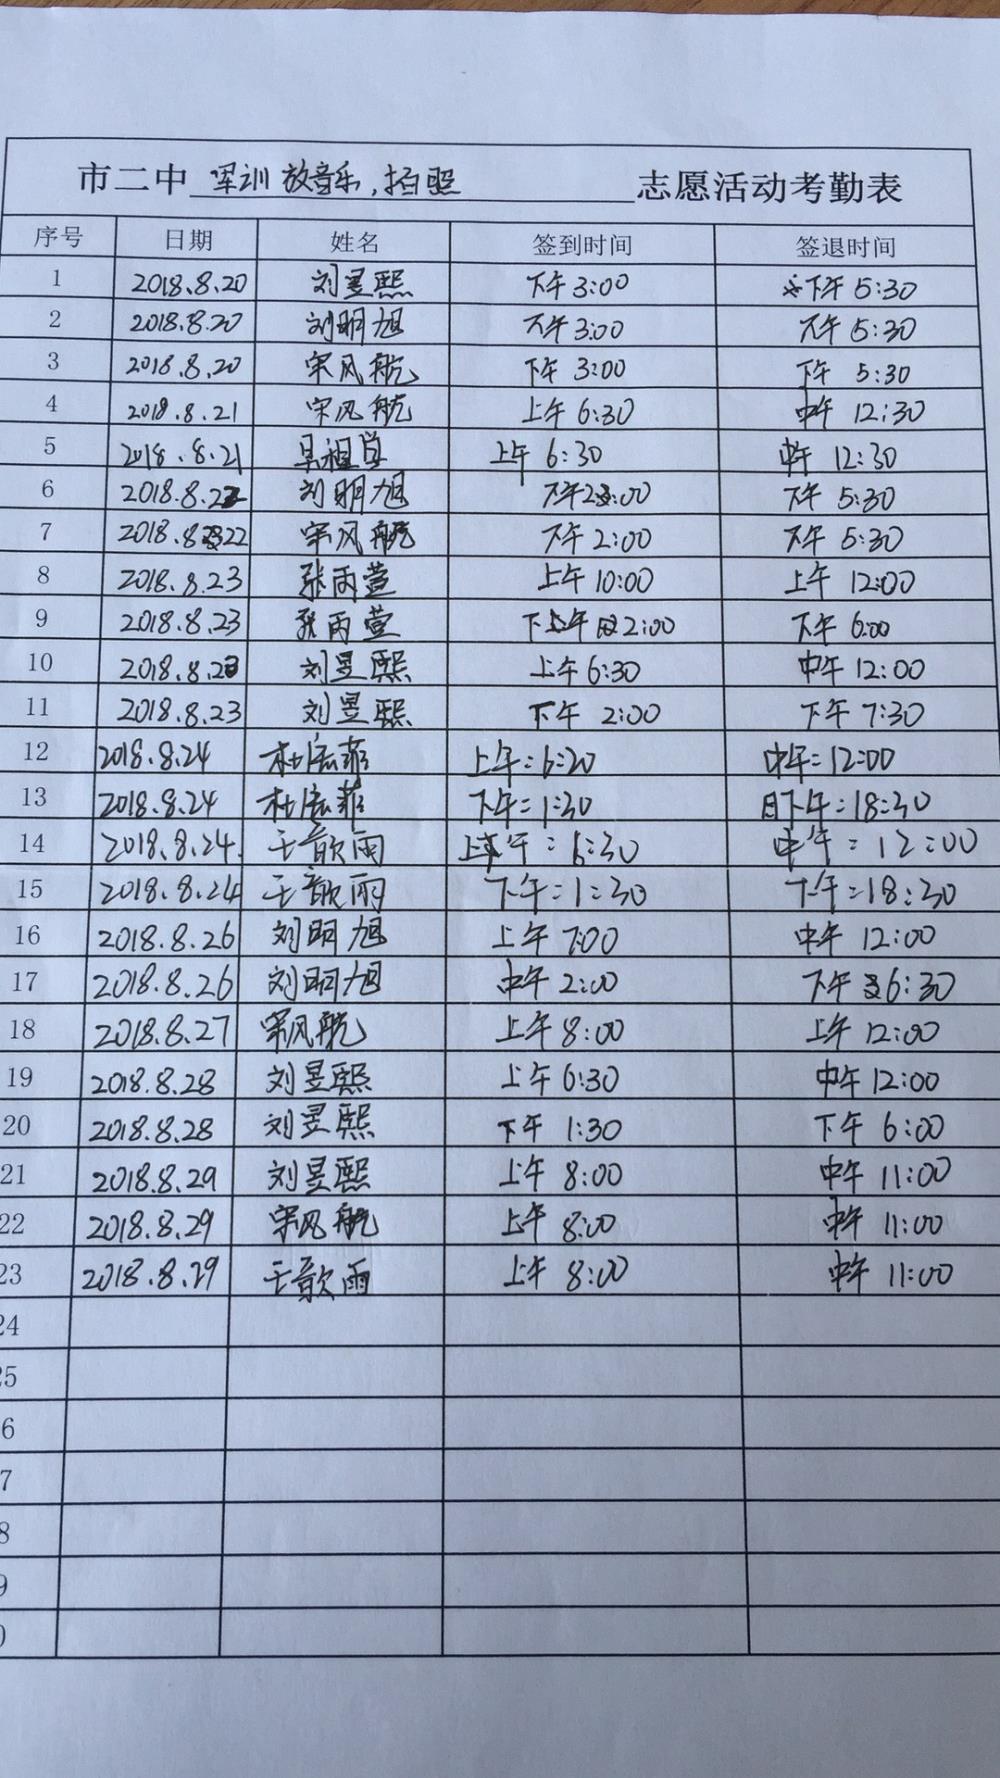 市二中 军训 放音乐,拍照 志愿活动考勤表
序号 日期 姓名 签到时间 签退时间
1 2018.8.20 刘昱熙 下午 3:00 下午 5:30
2 2018.8.20 刘明旭 下午 3:00 下午 5:30
3 2018.8.20 宋风航 下午 3:00 下午 5:30
4 2018.8.21 宋风航 上午 6:30 中午 12:30
5 2018.8.21 上午 6:30 中午 12:30
6 2018.8.22 刘明旭 下午2:00 下午 5:30
7 2018.8.22 宋风航 下午 2:00 下午 5:30
8 2018.8.23 张丙萱 上午 10:00 上午 12:00
9 2018.8.23 张丙萱 下午 2:00 下午 6:00
10 2018.8.23 刘昱熙 上午 6:30 中午 12:00
11 2018.8.23 刘昱熙 下午 2:00 下午 7:30
12 2018.8.24 上午:6:20 中午:12:00
13 2018.8.24 下午:1:30 下午:18:30
14 2018.8.24. 王歆雨 上午:6:30 中午:12:00
15 2018.8.24 王歆雨 下午:1:30 下午:18:30
16 2018.8.26 刘明旭 上午 7:00 中午 12:00
17 2018.8.26 刘明旭 中午 2:00 下午 6:30
18 2018.8.27 宋风航 上午 8:00 上午 12:00
19 2018.8.28 刘昱熙 上午 6:30 中午 12:00
20 2018.8.28 刘昱熙 下午 1:30 下午 6:00
21 2018.8.29 刘昱熙 上午 8:00 中午 11:00
22 2018.8.29 宋风航 上午 8:00 中午 11:00
23 2018.8.29 王歆雨 上午 8:00 中午 11:00
24
25
6
7
8
9
0